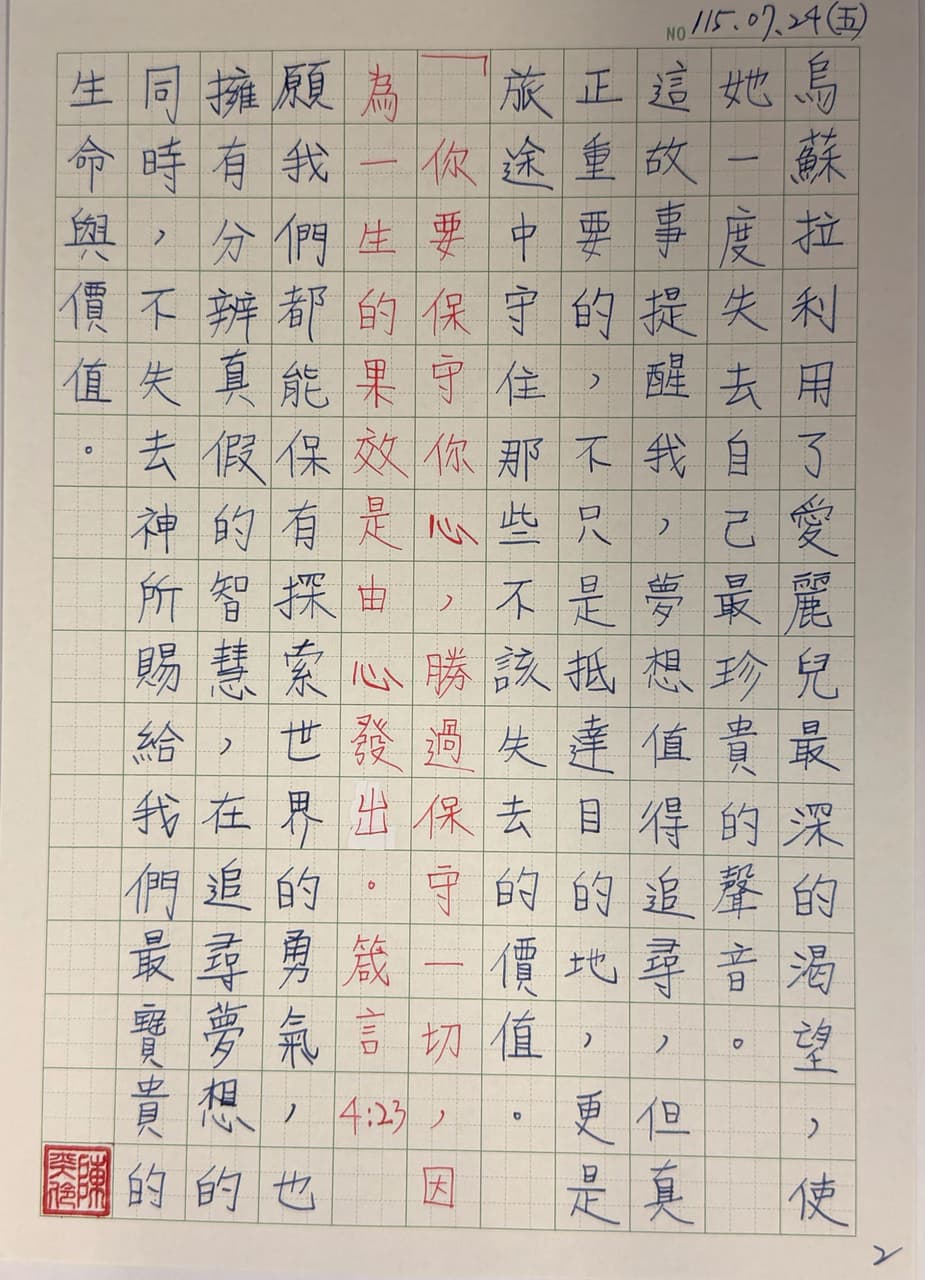 NO 115.07.24(五)
烏蘇拉利用了愛麗兒最深的渴望，使
她一度失去自己最珍貴的聲音。
這故事提醒我，夢想值得追尋，但真
正重要的，不只是抵達目的地，更是
旅途中守住那些不該失去的價值。
「你要保守你心，勝過保守一切，因
為一生的果效是由心發出。箴言4:23
願我們都能保有探索世界的勇氣，也
擁有分辨真假的智慧，在追尋夢想的
同時，不失去神所賜給我們最寶貴的
生命與價值。
2